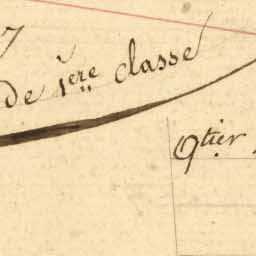 de 1ere classe
Qtier